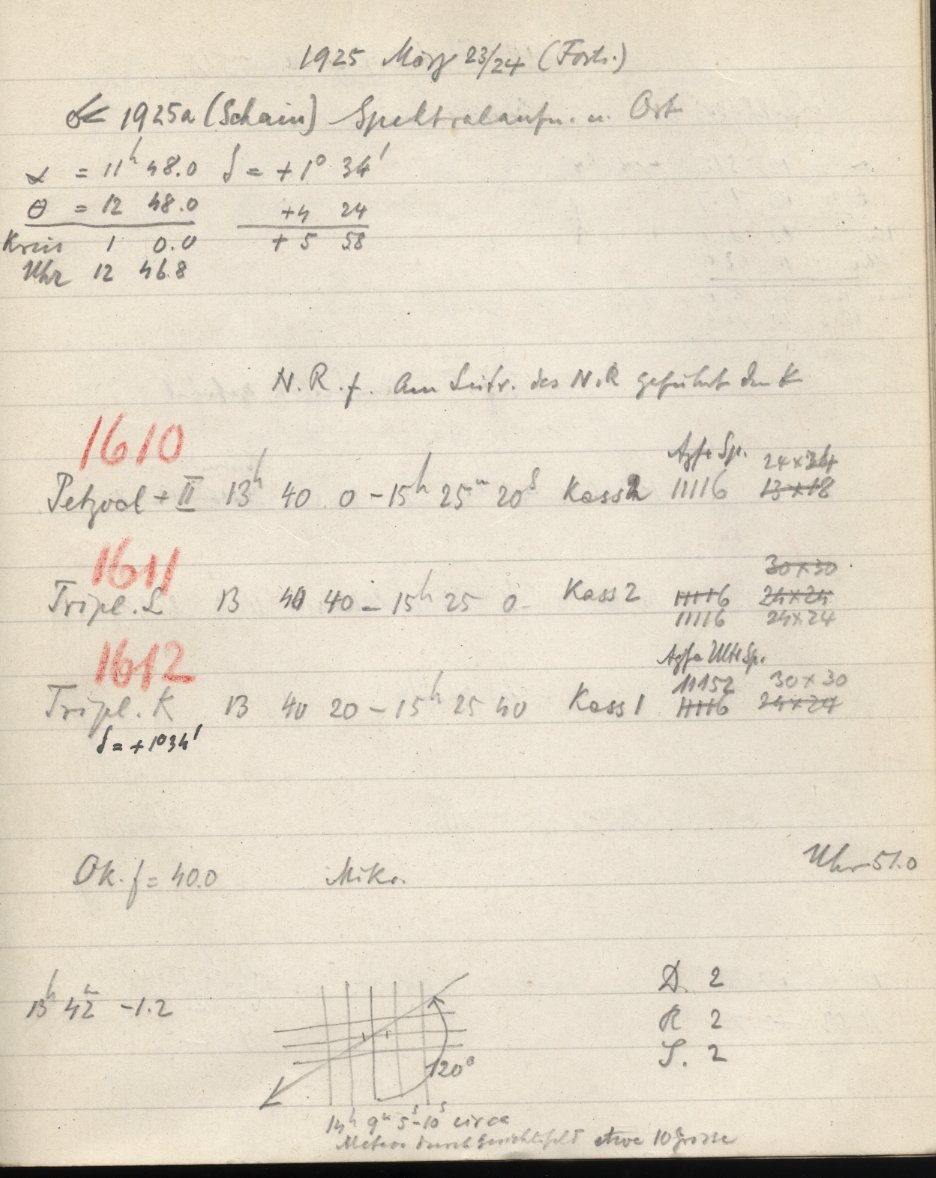 1925 März 23/24 (Forts.)
☄ 1925a (Schain) Spektralaufn. u. Ort
α = 11h 48.0 δ = +1° 34'
θ = 12 48.0 +4 24
Kreis 1 0.0 + 5 58
Uhr 12 46.8
N.R. f. Am Leitr. des N.R geführt den K
1610
Agfa Sp. 24×24
Petzval + II 13h 40 0 - 15h 25m 20s Kass 2 11116 13×18
1611
30×30
Tripl. L 13 40 40 - 15h 25 0 Kass 2 11116 24×24
11116 24×24
1612
Agfa Ultr Sp.
11152 30×30
Tripl. K 13 40 20 - 15h 25 40 Kass 1 11116 24×24
δ = +1°34'
Uhr 51.0
Ok. f = 40.0 Mikr.
D. 2
13h 42m -1.2
R 2
S. 2
120°
14h 9m 5s-10s circa
Meteor durch Gesichtsfeld etwa 10 Grösse